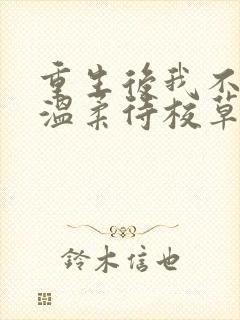 重生後我不
溫柔待校草
鈴木信也